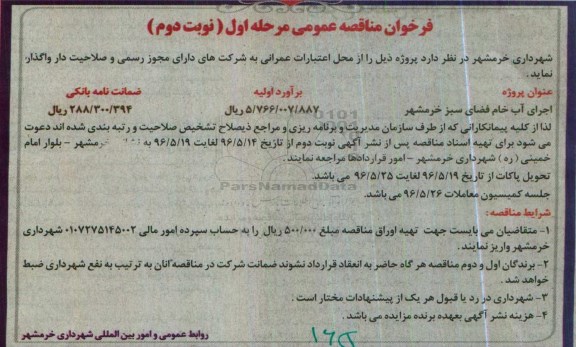 فرخوان مناقصه عمومی مرحله اول ( نوبت دوم )
شهرداری خرمشهر در نظر دارد پروژه ذیل را از محل اعتبارات عمرانی به شرکت های دارای مجوز رسمی و صلاحیت دار واگذار
نماید .
عنوان پروژه برآورد اولیه ضمانت نامه بانکی
اجرای آب خام فضای سبز خرمشهر ۵/۷۶۶/۰۰۷/۸۸۷ ریال ۲۸۸/۳۰۰/۳۹۴ ریال
لذا از کلیه پیمانکارانی که از طرف سازمان مدیریت و برنامه ریزی و مراجع ذیصلاح تشخیص صلاحیت و رتبه بندی شده اند دعوت
می شود برای تهیه اسناد مناقصه پس از نشر آگهی نوبت دوم از تاریخ ۹۶/۵/۱۴ لغایت ۹۶/۵/۱۹ به خرمشهر - بلوار امام
خمینی (ره ) شهرداری خرمشهر - امور قراردادها مراجعه نمایند .
تحویل پاکات از تاریخ ۹۶/۵/۱۹ لغایت ۹۶/۵/۲۵ می باشد.
جلسه کمیسیون معاملات ۹۶/۵/۲۶ می باشد.
شرایط مناقصه :
۱- متقاضیان می بایست جهت تهیه اوراق مناقصه مبلغ ۵۰۰/۰۰۰ ریال را به حساب سپرده امور مالی ۰۱۰۷۲۷۵۱۴۵۰۰۲ شهرداری
خرمشهر واریز نمایند .
۲- برندگان اول و دوم مناقصه هر گاه حاضر به انعقاد قرارداد نشوند ضمانت شرکت در مناقصه آنان به ترتیب به نفع شهرداری ضبط
خواهد شد .
۳- شهرداری در رد یا قبول هر یک از پیشنهادات مختار است .
۴- هزینه نشر آگهی بعهده برنده مزایده می باشد .
روابط عمومی و امور بین المللی شهرداری خرمشهر
ParsNamadData